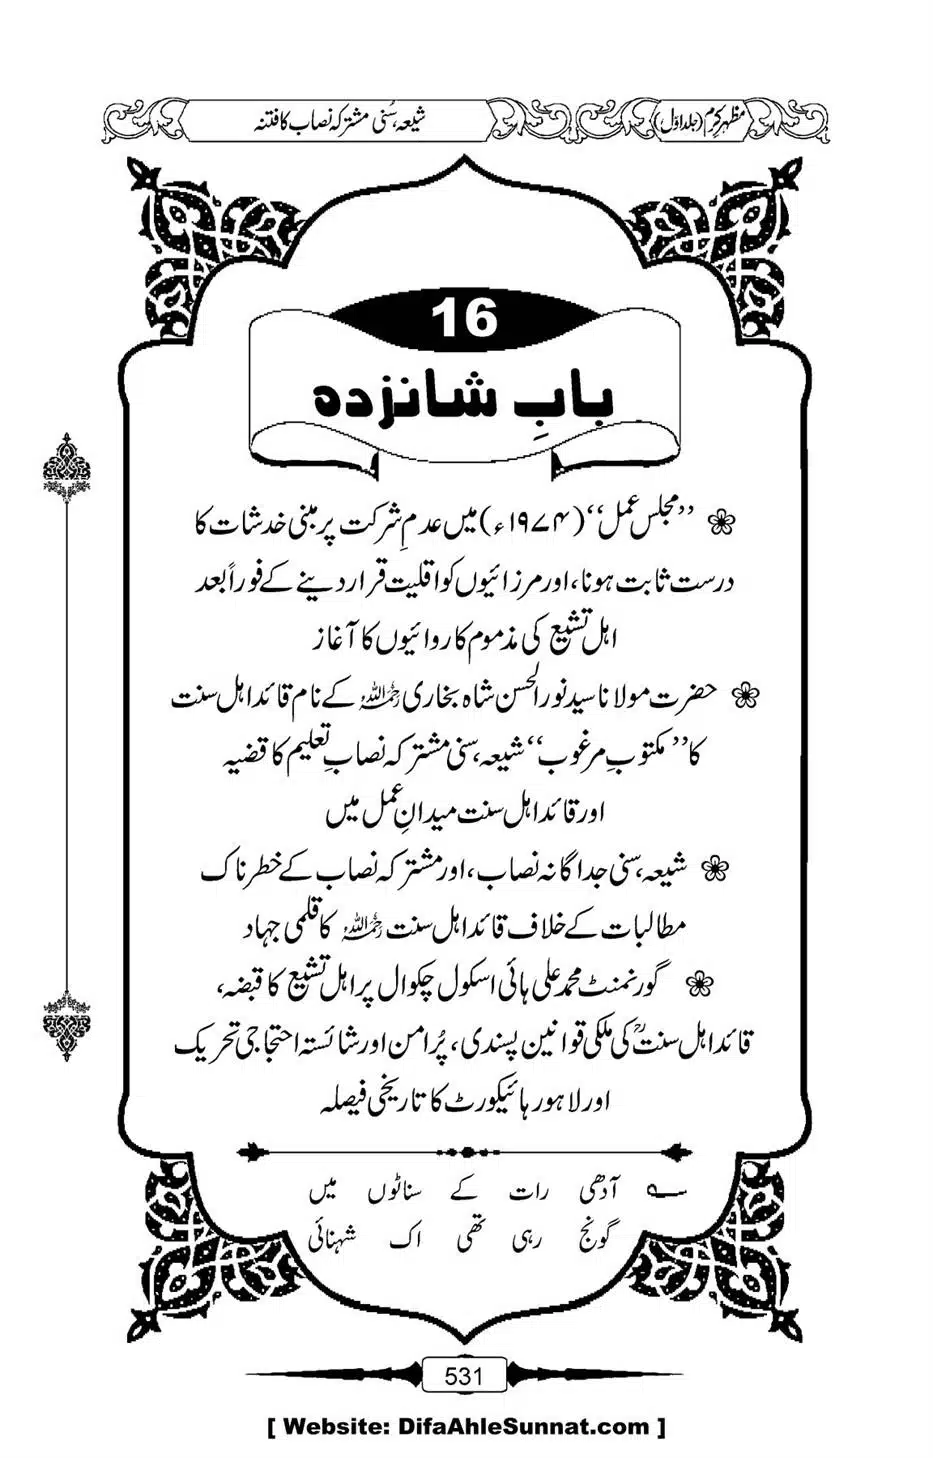 مظہرِ کرم (جلد اوّل)
شیعہ، سُنی مشترکہ نصاب کا فتنہ
16
بابِ شانزدہ
’’مجلس عمل‘‘ (۱۹۷۴ء) میں عدمِ شرکت پر مبنی خدشات کا
درست ثابت ہونا، اور مرزائیوں کو اقلیت قرار دینے کے فوراً بعد
اہل تشیع کی مذموم کاروائیوں کا آغاز
حضرت مولانا سید نور الحسن شاہ بخاری رحمہ اللہ کے نام قائد اہل سنت
کا ’’مکتوبِ مرغوب‘‘ شیعہ، سنی مشترکہ نصابِ تعلیم کا قضیہ
اور قائد اہل سنت میدانِ عمل میں
شیعہ، سنی جداگانہ نصاب، اور مشترکہ نصاب کے خطرناک
مطالبات کے خلاف قائد اہل سنت رحمہ اللہ کا قلمی جہاد
گورنمنٹ محمد علی ہائی اسکول چکوال پر اہل تشیع کا قبضہ،
قائد اہل سنتؒ کی ملکی قوانین پسندی، پُر امن اور شائستہ احتجاجی تحریک
اور لاہور ہائیکورٹ کا تاریخی فیصلہ
؎ آدھی رات کے سناٹوں میں
گونج رہی تھی اک شہنائی
531
[ Website: DifaAhleSunnat.com ]